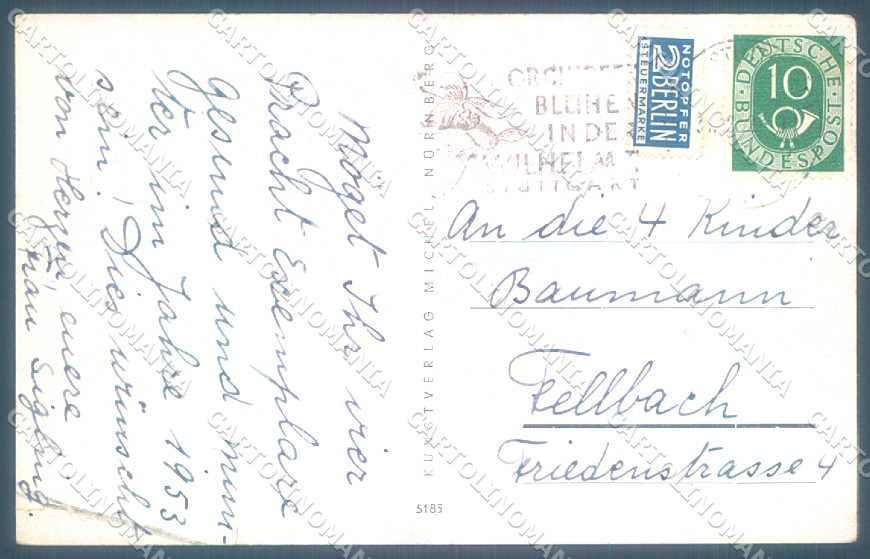 Möget Ihr vier
Pracht Exemplare
gesund und mun-
ter im Jahre 1953
sein! Dies wünscht
von Herzen euere
Frau Sigling.
KUNSTVERLAG MICKEL, NÜRNBERG
5185
ORCHIDEEN
BLÜHEN
IN DER
WILHELMA
STUTTGART
NOTOPFER
2 BERLIN
STEUERMARKE
DEUTSCHE
BUNDESPOST
10
An die 4 Kinder
Baumann
Fellbach
Friedenstrasse 4
CARTOLINOMANIA